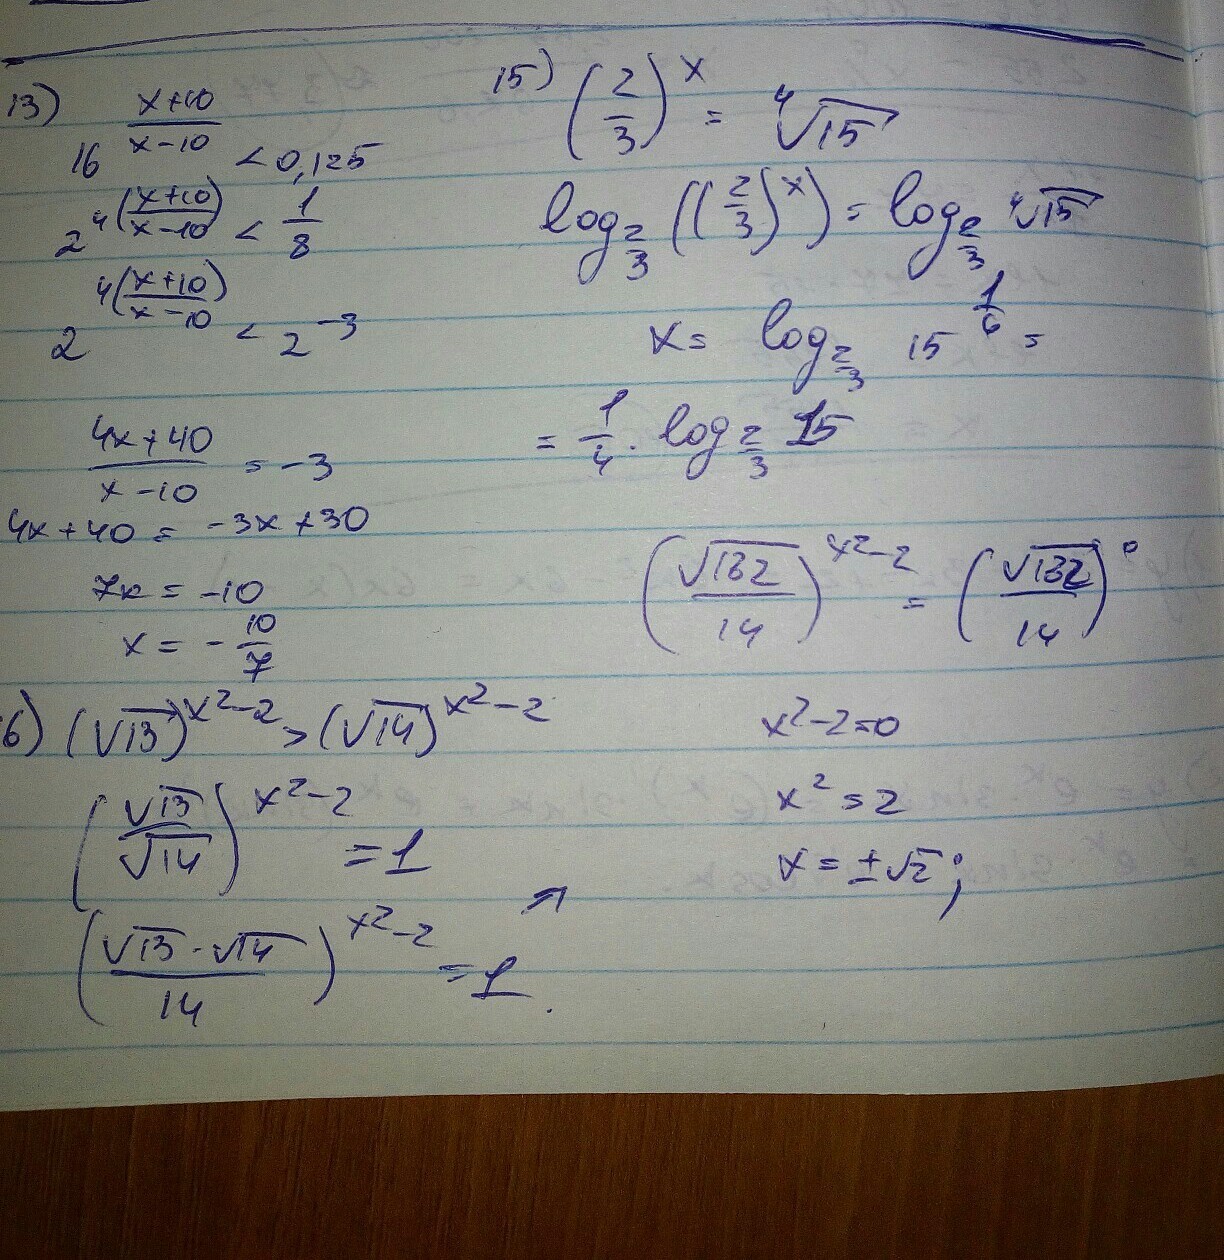 13) 16^((x+10)/(x-10)) < 0,125
2^(4((x+10)/(x-10))) < 1/8
2^(4((x+10)/(x-10))) < 2^(-3)
(4x+40)/(x-10) = -3
4x+40 = -3x+30
7x = -10
x = -10/7
15) (2/3)^x = ⁴√15
log_(2/3) ((2/3)^x) = log_(2/3) ⁴√15
x = log_(2/3) 15^(1/4) =
= 1/4 · log_(2/3) 15
6) (√13)^(x²-2) > (√14)^(x²-2)
(√13/√14)^(x²-2) = 1
((√13·√14)/14)^(x²-2) = 1.
(√132/14)^(x²-2) = (√132/14)^0
x²-2=0
x²=2
x=±√2;